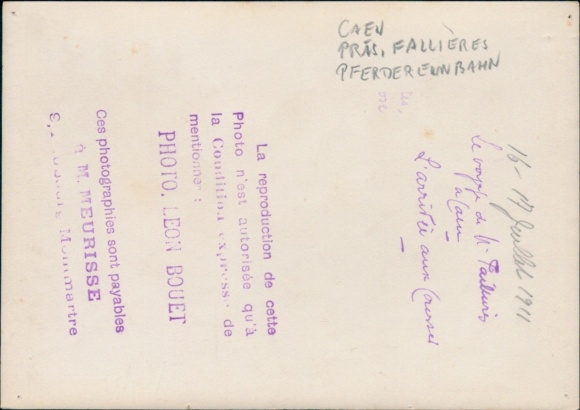 CAEN
PRÄS. FALLIÈRES
PFERDERENNBAHN
16-17 Juillet 1911
Le voyage de M. Fallières
à Caen
L'arrivée aux Courses
La reproduction de cette
Photo n'est autorisée qu'à
la Condition expresse de
mentionner :
PHOTO. LEON BOUET
Ces photographies sont payables
à M. MEURISSE
Montmartre